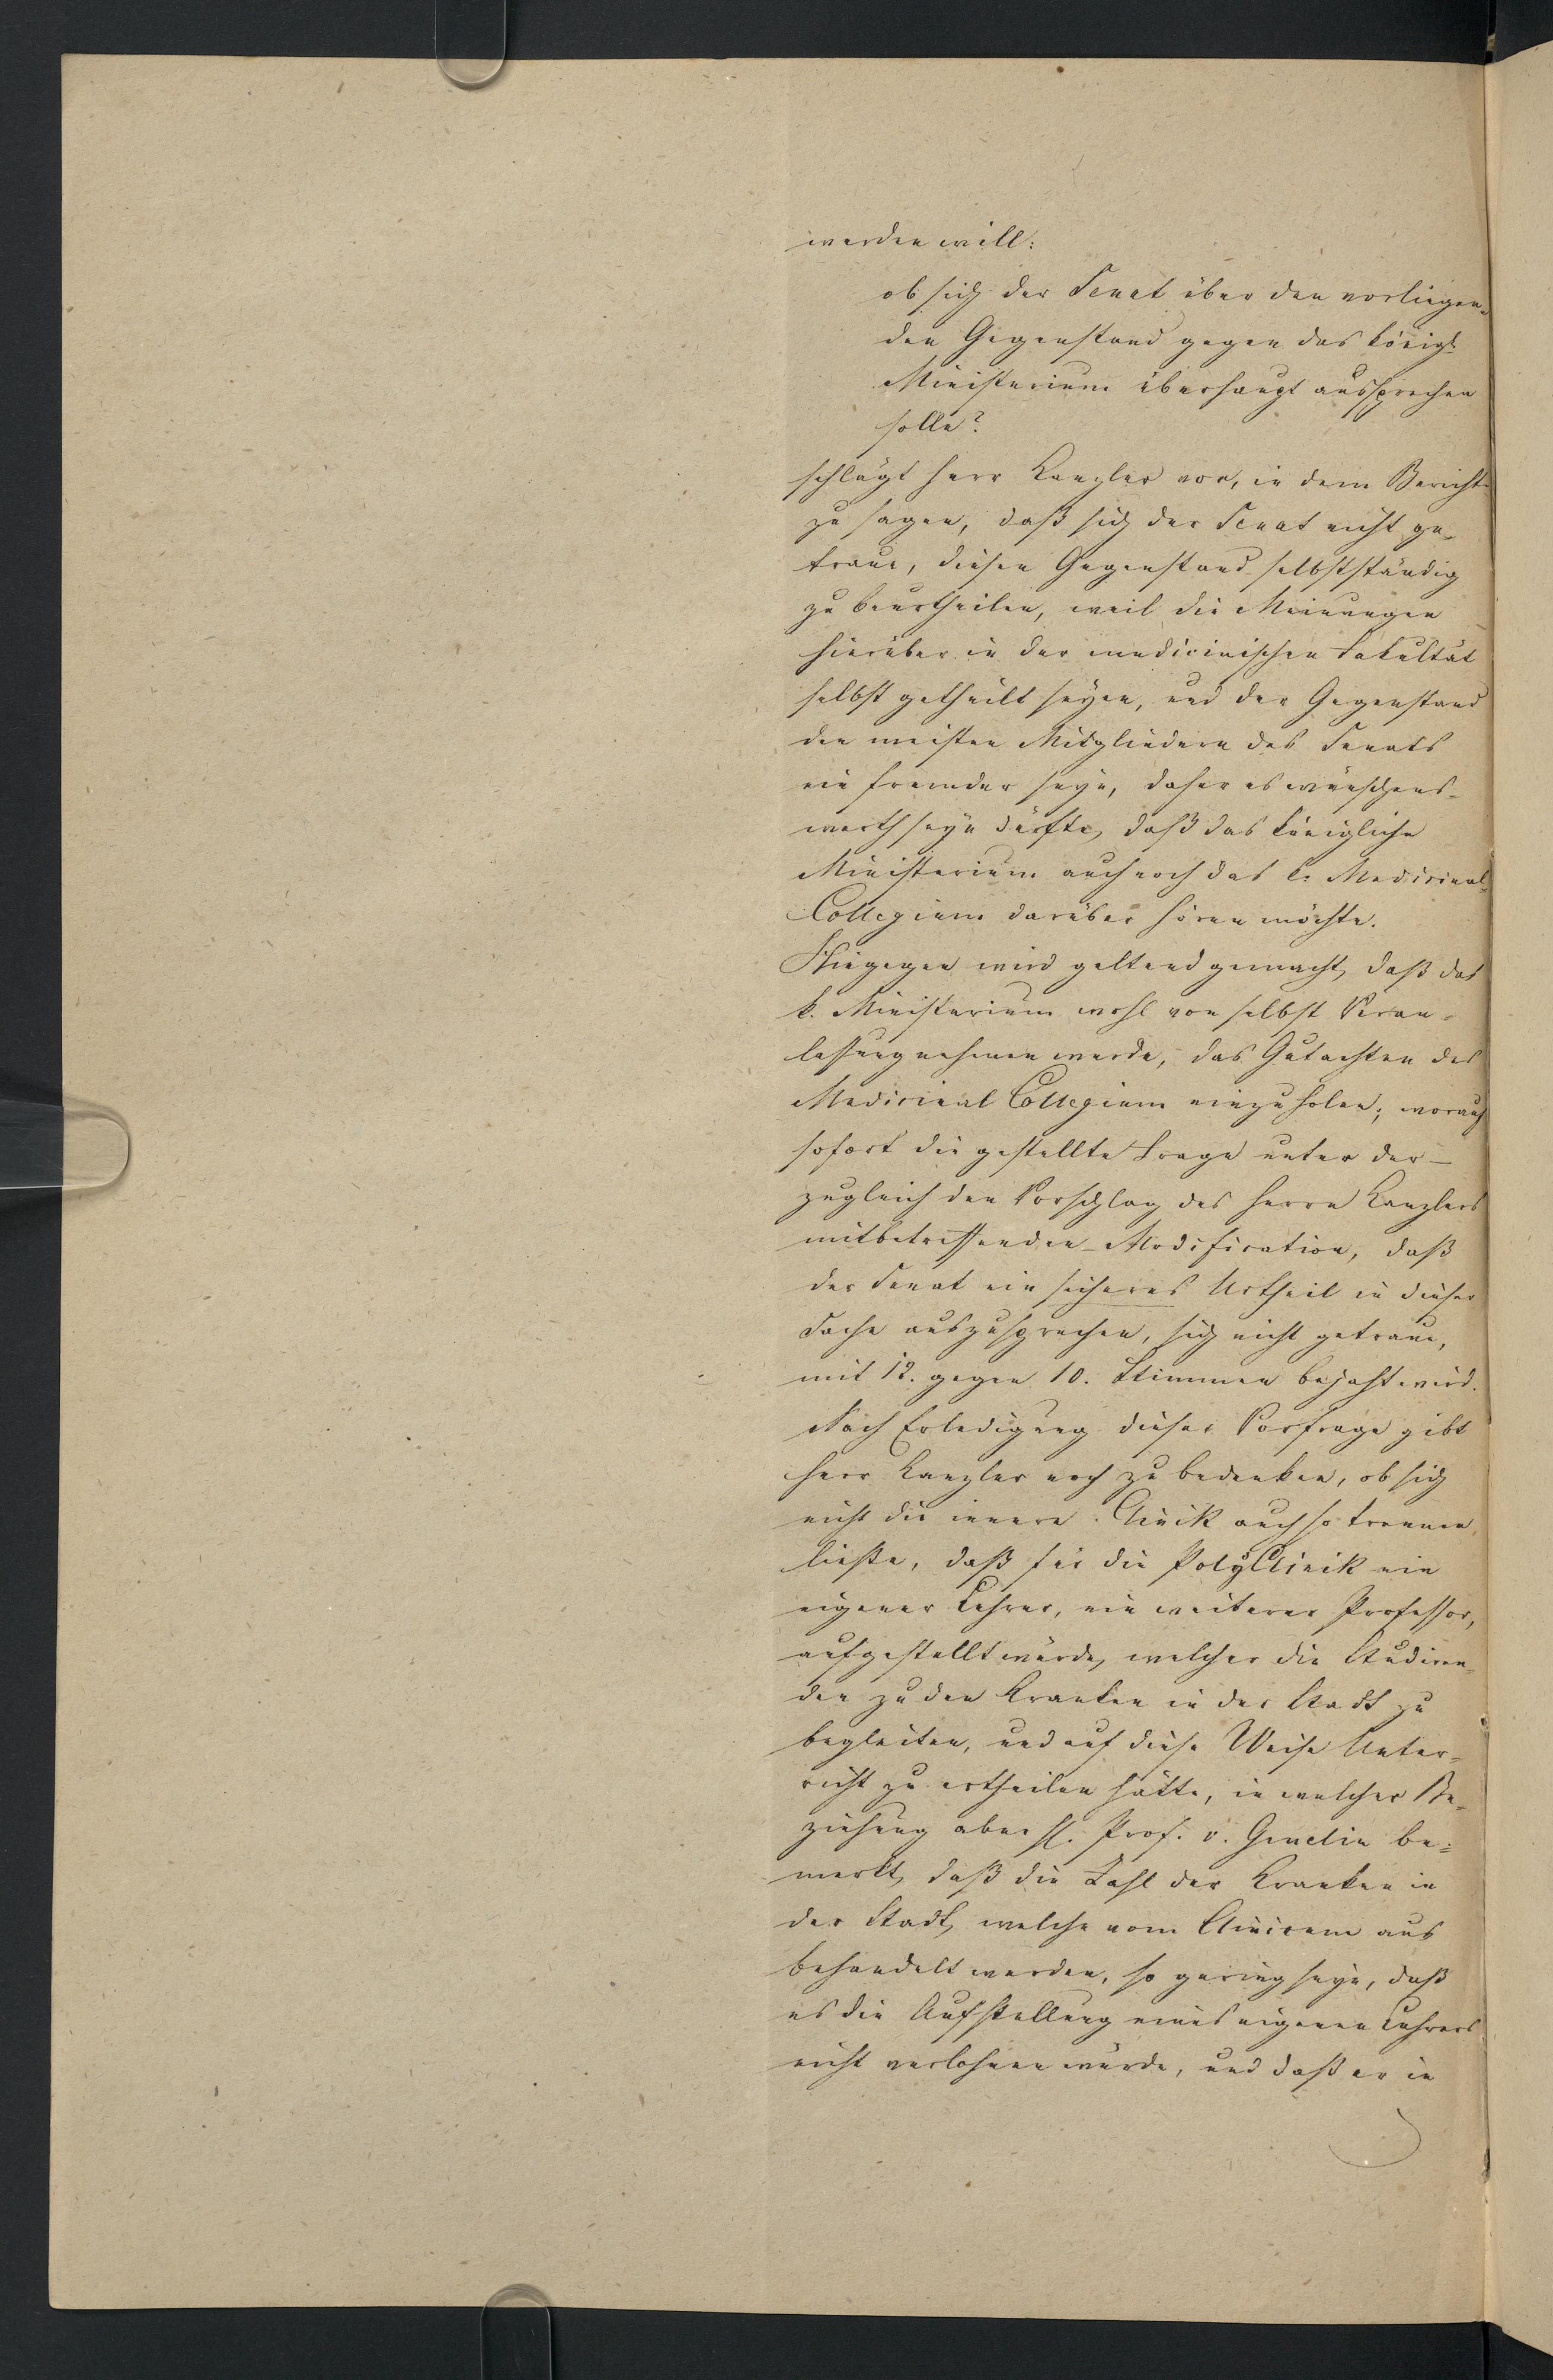 werden will:
ob sich der Senat über den vorliegen-
den Gegenstand gegen das königl.
Ministerium überhaupt aussprechen
solle?
schlägt Herr Kanzler vor, in dem Berichte
zu sagen, daß sich der Senat nicht ge-
traue, diesen Gegenstand selbstständig
zu beurtheilen, weil die Meinungen
hierüber in der medicinischen Fakultät
selbst getheilt seyen, und der Gegenstand
den meisten Mitgliedern des Senats
ein fremder seye, daher es wünschens-
werth seyn dürfte, daß das königliche
Ministerium auch noch das k. Medicinal-
Collegium darüber hören möchte.
Hingegen wird geltend gemacht, daß das
k. Ministerium wohl von selbst Veran-
lassung nehmen werde, das Gutachten des
Medicinal Collegium einzuholen; worauf
sofort die gestellte Frage unter der –
zugleich den Vorschlag des Herrn Kanzlers
mitbetreffenden – Modification, daß
der Senat ein sicheres Urtheil in dieser
Sache auszusprechen, sich nicht getraue,
mit 12. gegen 10. Stimmen bejaht wird.
Nach Erledigung dieser Vorfrage gibt
Herr Kanzler noch zu bedenken, ob sich
nicht die innere Clinik auch so trennen
ließe, daß für die PolyClinik ein
eigener Lehrer, ein weiterer Professor,
aufgestellt würde, welcher die Studiren-
den zu den Kranken in der Stadt zu
begleiten, und auf diese Weise Unter-
richt zu ertheilen hätte, in welcher Be-
ziehung aber H. Prof. v. Gmelin be-
merkt, daß die Zahl der Kranken in
der Stadt, welche vom Clinicum aus
behandelt werden, so gering seye, daß
es die Aufstellung eines eigenen Lehrers
nicht verlohnen würde, und daß er in